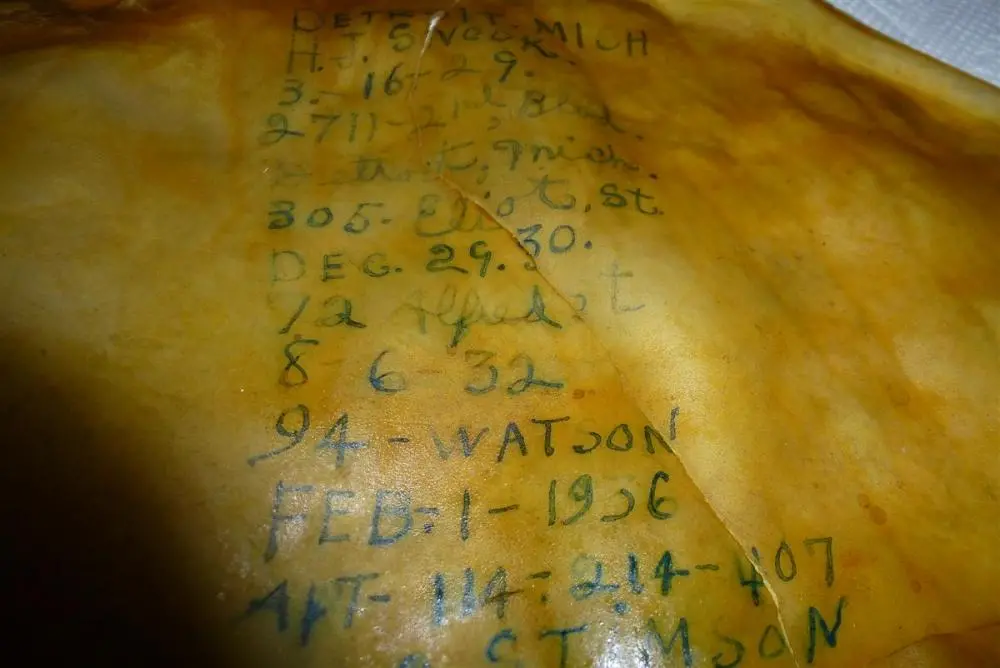 DETROIT. MICH
H.J. Svec
3.-16-29.
2711-2nd, Blvd.
troit, Mich.
305- Eliot, st.
DEC. 29.30.
72 Alfred st
8-6-32.
94-WATSON
FEB-1-1936
APT-114-214-407